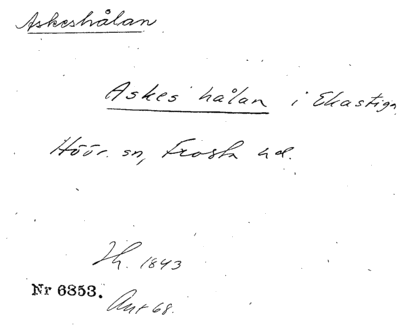 Askeshålan
Askes hålan i Ekastiga
Höör sn, Frosta hd.
Jh. 1843
Nr 6353.
Ant 68.